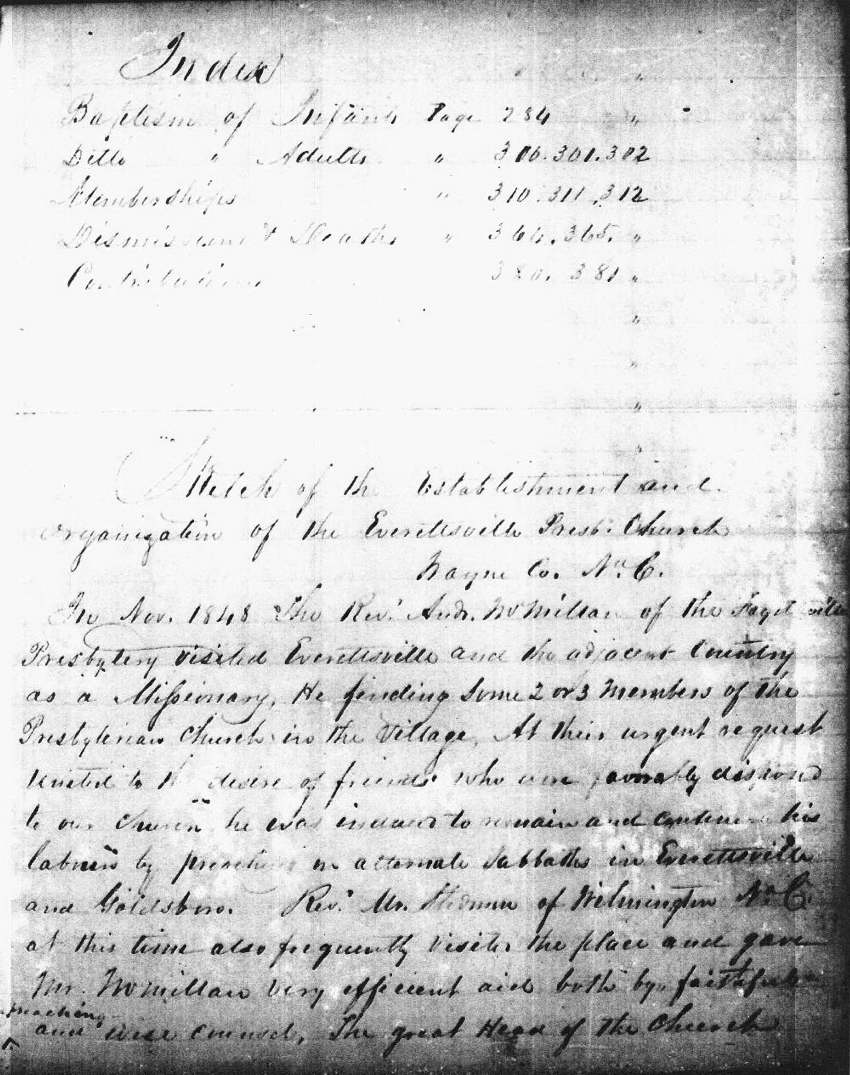 Index
Baptism of Infants Page 284 "
Ditto " Adults " 300.301.302
Memberships " 310.311.312
Dismissions & Deaths " 364.365. "
Contributions 380. 381 "
Sketch of the Establishment and
organization of the Everettsville Presb. Church
Wayne Co. No. C.
In Nov. 1848 The Rev. Andr. McMillan of the Fayetteville
Presbytery visited Everettsville and the adjacent Country
as a Missionary, He finding some 2 or 3 members of the
Presbyterian Church in the Village, At their urgent request
united to the desire of friends who were favorably disposed
to our church he was induced to remain and continue his
labours by preaching on alternate Sabbaths in Everettsville
and Goldsboro. Rev. Mr. of Wilmington No. C.
at this time also frequently visited the place and gave
Mr. McMillan very efficient aid both by faithful
preaching
and wise counsel, The great Head of the Church